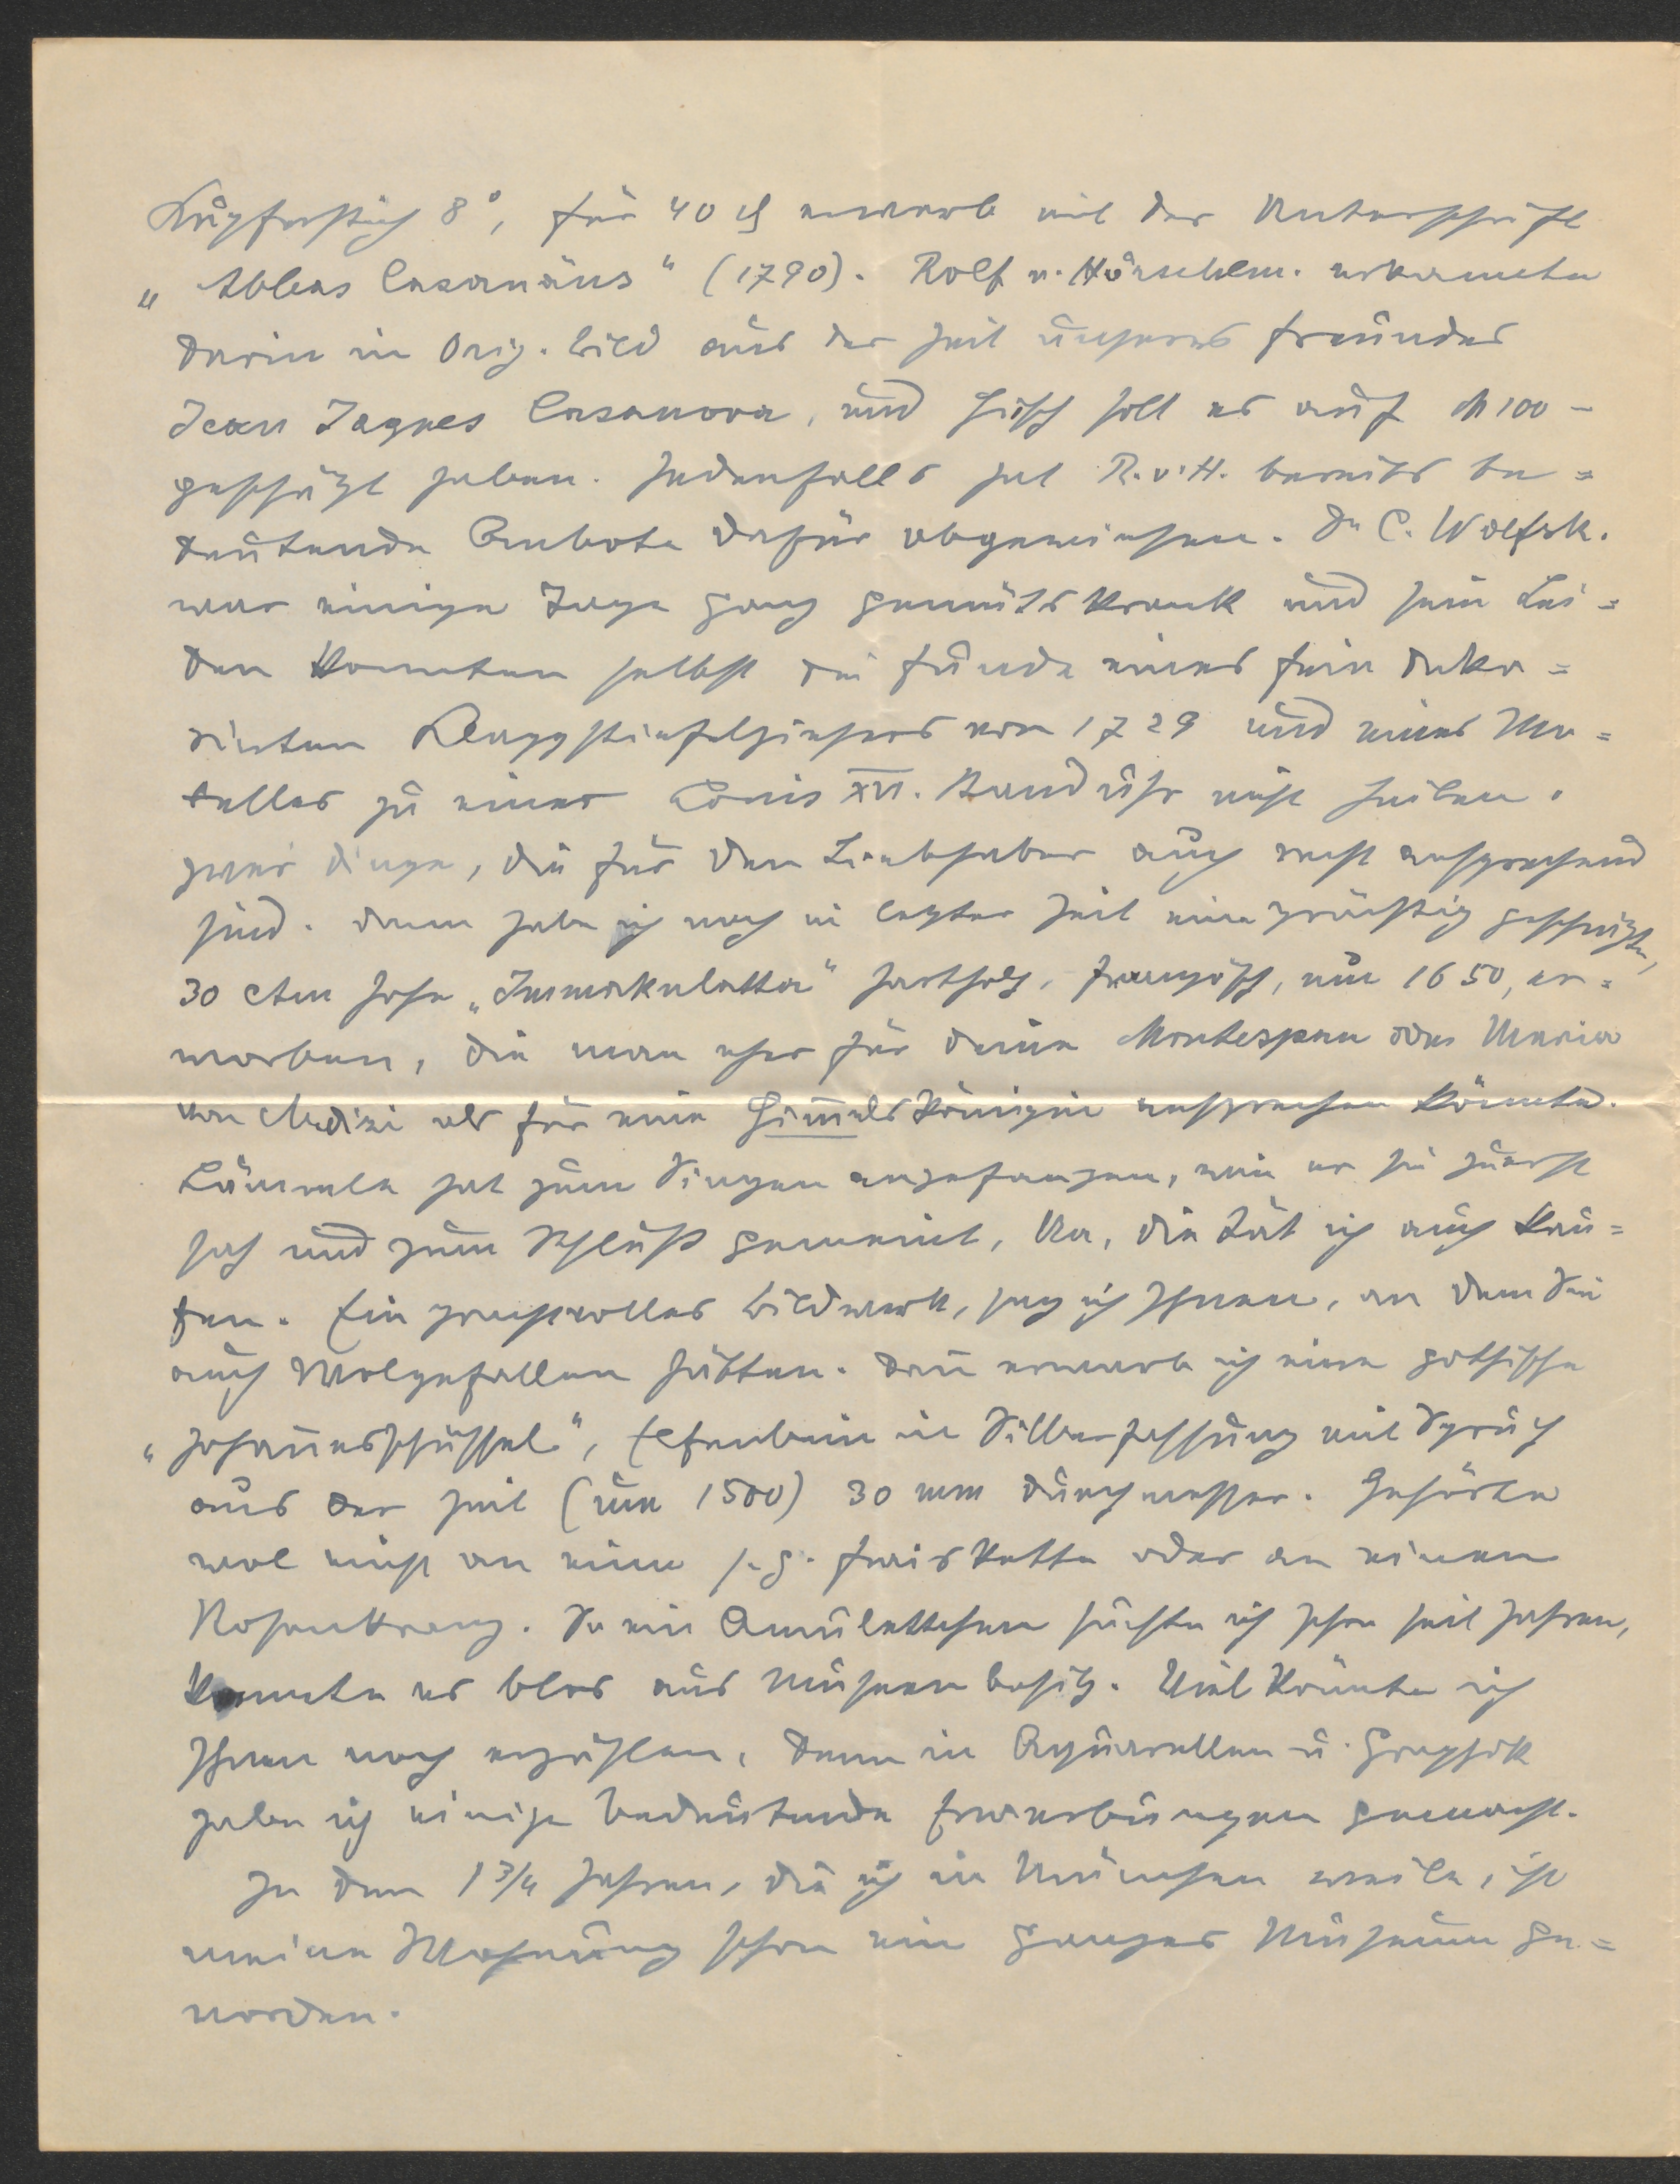 Kupferstich 8°, für 40 ₰ erwarb mit der Unterschrift
„Abbas Casanäus“ (1790). Rolf v. Hörschlm. erkannte
darin ein Orig. Bild aus der Zeit unseres Freundes
Jean Jaques Casanova, und Hirsch soll es auf M 100 –
geschätzt haben. Jedenfalls hat R. v. H. bereits be=
deutende Anbote dafür abgewiesen. Dr C. Wolfsk.
war einige Tage ganz gemütskrank und sein Lei=
den konnten selbst die Funde eines fein deko=
rierten Klappstiefelziehers von 1729 und eines Mo=
delles zu einer Louis XVI. Standuhr nicht heilen.
zwei Dinge, die für den Liebhaber auch recht ansprechend
sind. Dann habe ich noch in letzter Zeit eine prächtig geschnitzte,
30 ctm hohe „Immakulatta“ Hartholz, französ., um 1650, er=
worben, die man eher für eine Montespan oder Maria
von Medizi als für eine Himmelskönigin ansprechen könnte.
Lämmle hat zum Singen angefangen, wie er sie zuerst
sah und zum Schluß gemeint, Na, die tät ich auch kau=
fen. Ein prachtvolles Bildwerk, sag ich Ihnen, an dem Sie
auch Wolgefallen hätten. Dann erwarb ich eine gothische
„Johannesschüssel“, Elfenbein in Silberfassung mit Spruch
aus der Zeit (um 1500) 30 mm Durchmesser. Gehörte
wol einst an eine s. g. Fraiskette oder an einen
Rosenkranz. So ein Amulettchen suchte ich schon seit Jahren,
kannte es blos aus Museenbesitz. Viel könnte ich
Ihnen noch erzählen, denn in Aquarellen u. Graphik
habe ich einige bedeutende Erwerbungen gemacht.
In den 1 3/4 Jahren, die ich in München weile, ist
meine Wohnung schon ein ganzes Museum ge=
worden.